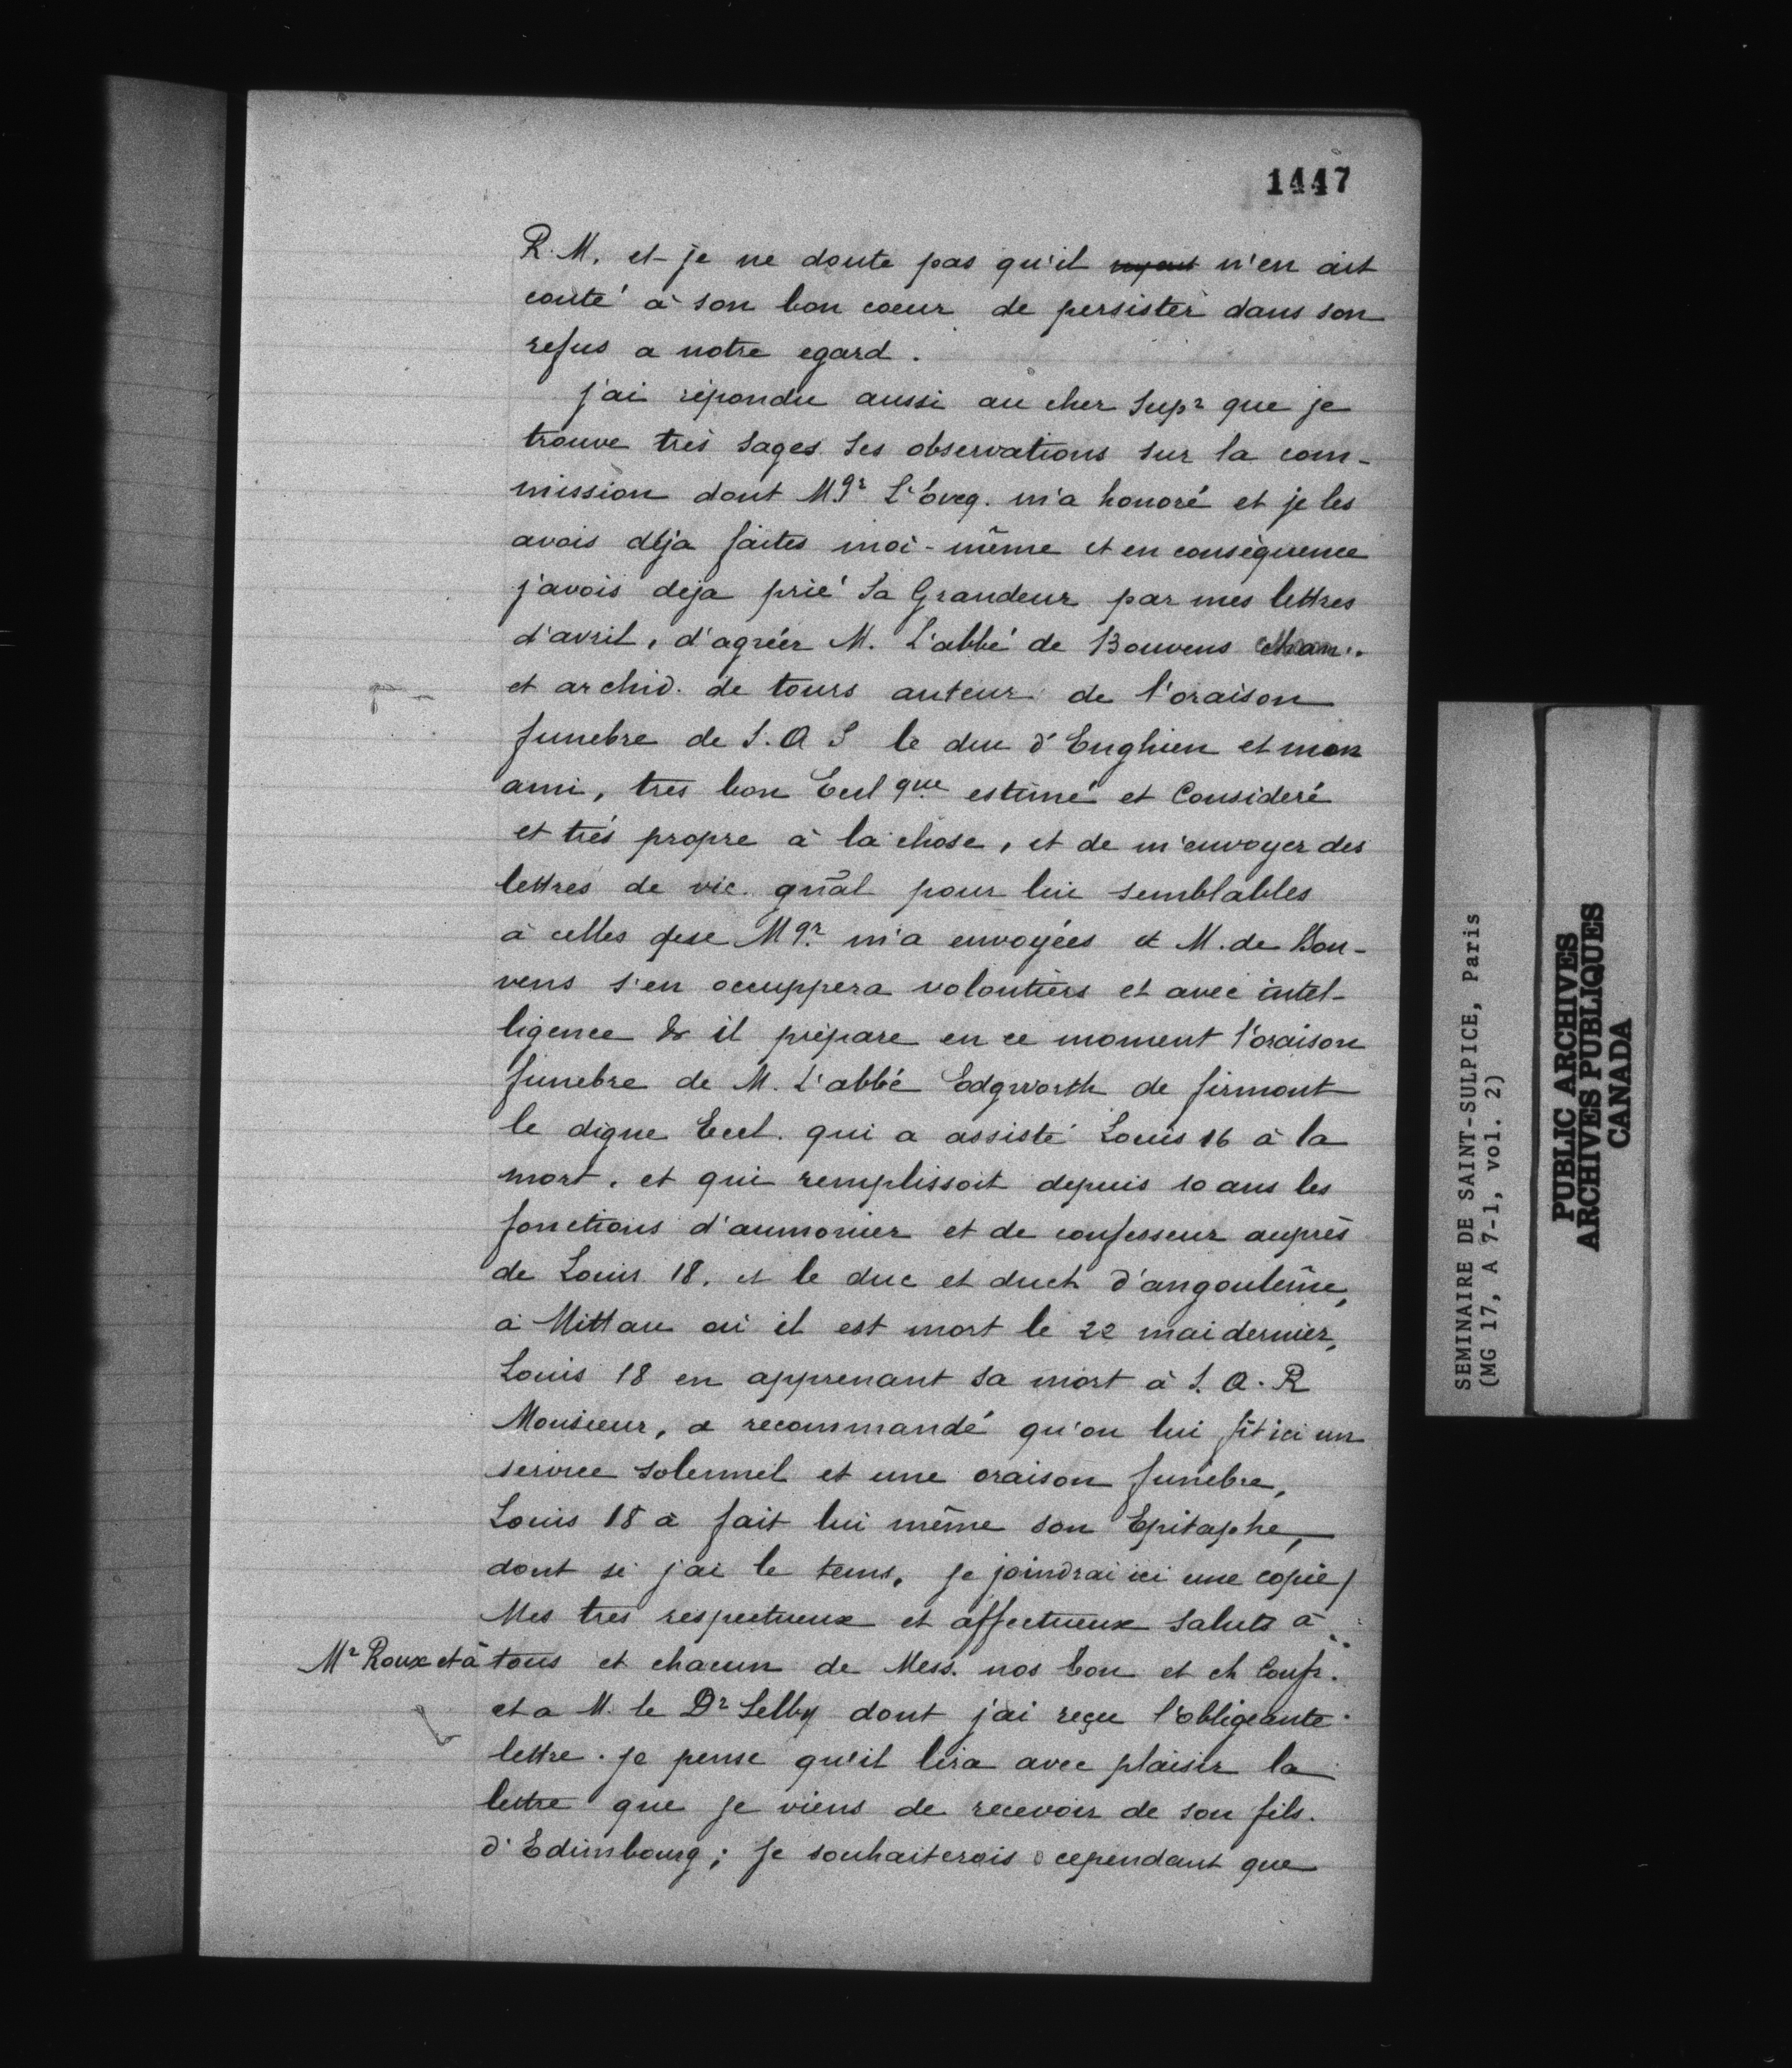 1447
R. M. et je ne doute pas qu'il n'en ait
couté à son bon coeur de persister dans son
refus a notre egard.
j'ai répondu aussi au cher Supr que je
trouve très sages ses observations sur la com-
mission dont Mgr L'éveq. m'a honoré et je les
avois déja faites moi-même et en conséquence
j'avois deja prié Sa Grandeur par mes lettres
d'avril, d'agréer M. L'abbé de Bouvens chan..
et archid. de tours auteur de l'oraison
funebre de S. A S le duc d'Enghien et mon
ami, tres bon Eccl que estimé et Consideré
et très propre à la chose, et de m'envoyer des
lettres de vic. gñal pour lui semblables
à celles que Mgr m'a envoyées et M. de Bou-
vens s'en occuppera volontiers et avec intel-
ligence & il prépare en ce moment l'oraison
funebre de M. L'abbé Edgworth de firmont
le digne Eccl. qui a assisté Louis 16 à la
mort, et qui remplissoit depuis 10 ans les
fonctions d'aumonier et de confesseur auprès
de Louis 18. et le duc et duch d'angoulême,
à Mittau où il est mort le 22 mai dernier,
Louis 18 en apprenant sa mort à S. A. R
Monsieur, a recommandé qu'on lui fit ici un
service solennel et une oraison funèbre,
Louis 18 a fait lui même son Epitaphe,
dont si j'ai le tems, je joindrai ici une copie/
Mes tres respectueux et affectueux saluts à
Mr Roux et à tous et chacun de Mess. nos bon et ch Confr.
et a M. le Dr Selby dont j'ai reçu l'obligeante
lettre. je pense qu'il lira avec plaisir la
lettre que je viens de recevoir de son fils.
d'Edimbourg; je souhaiterois cependant que
SEMINAIRE DE SAINT-SULPICE, Paris
(MG 17, A 7-1, vol. 2)
PUBLIC ARCHIVES
ARCHIVES PUBLIQUES
CANADA